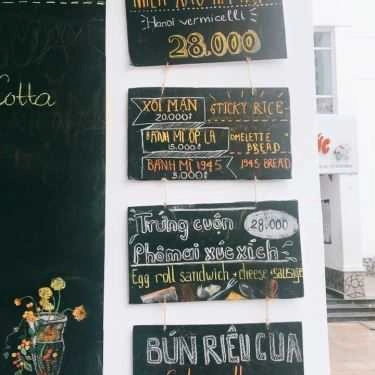 Cotta
Hanoi vermicelli
28.000
XÔI MẶN
20.000đ
STICKY RICE
BÁNH MÌ ỐP LA
15.000đ
OMELETTE
BREAD
BÁNH MÌ 1945
1945 BREAD
Trứng cuộn
28.000
Phômai xúc xích
Egg roll sandwich + cheese + sausage
BÚN RIÊU CUA